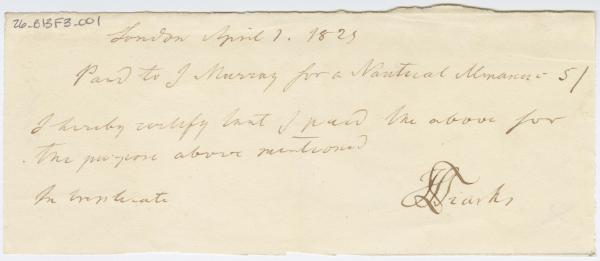 26_B13F3_001
London April 1. 1825
Paid to J Murray for a Nautical Almanac - 5/
I hereby certify that I paid the above for
the purpose above mentioned
In triplicate
Tiarks